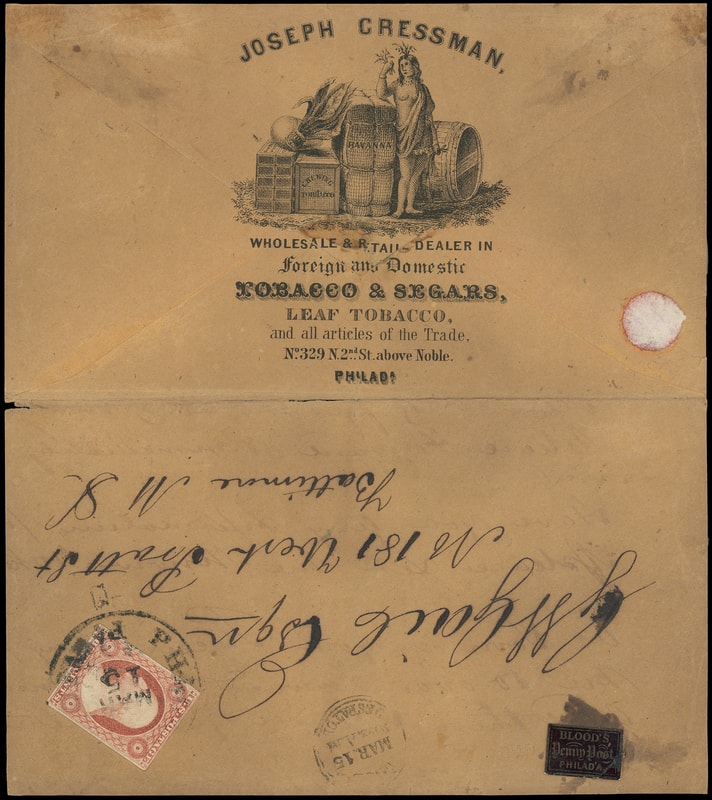 JOSEPH CRESSMAN,
HAVANNA
CHEWING
TOBACCO
WHOLESALE & RETAIL DEALER IN
Foreign and Domestic
TOBACCO & SEGARS,
LEAF TOBACCO,
and all articles of the Trade,
No. 329 N. 2nd St. above Noble.
PHILADA
G W Gail Esqr
No 181 West Pratt St
Baltimore Md
MAR
15
MAR 15
BLOOD'S
Penny Post
PHILAD'A